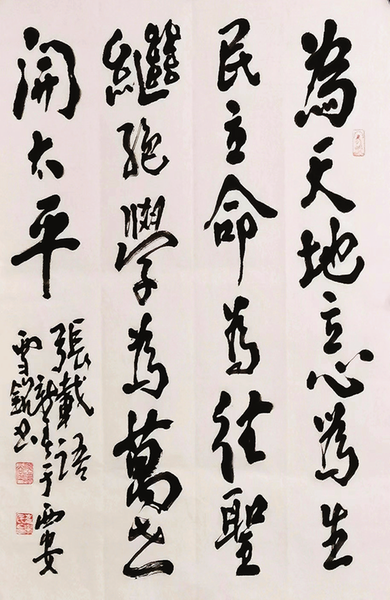 為天地立心為生
民立命為往聖
繼絕學為萬世
開太平
張載語
于西安
雪銘書